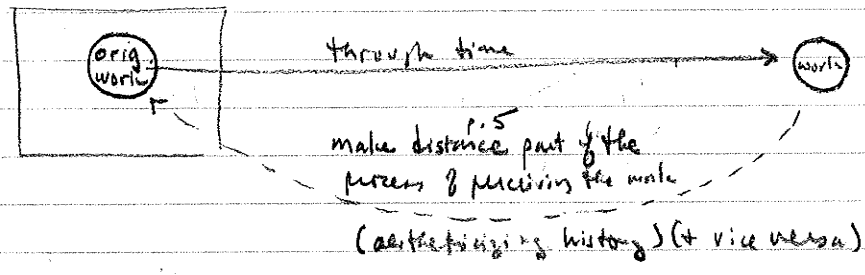 orig.
work
through time
work
p. 5
make distance part of the
process of perceiving the work
(aestheticizing history) (+ vice versa)